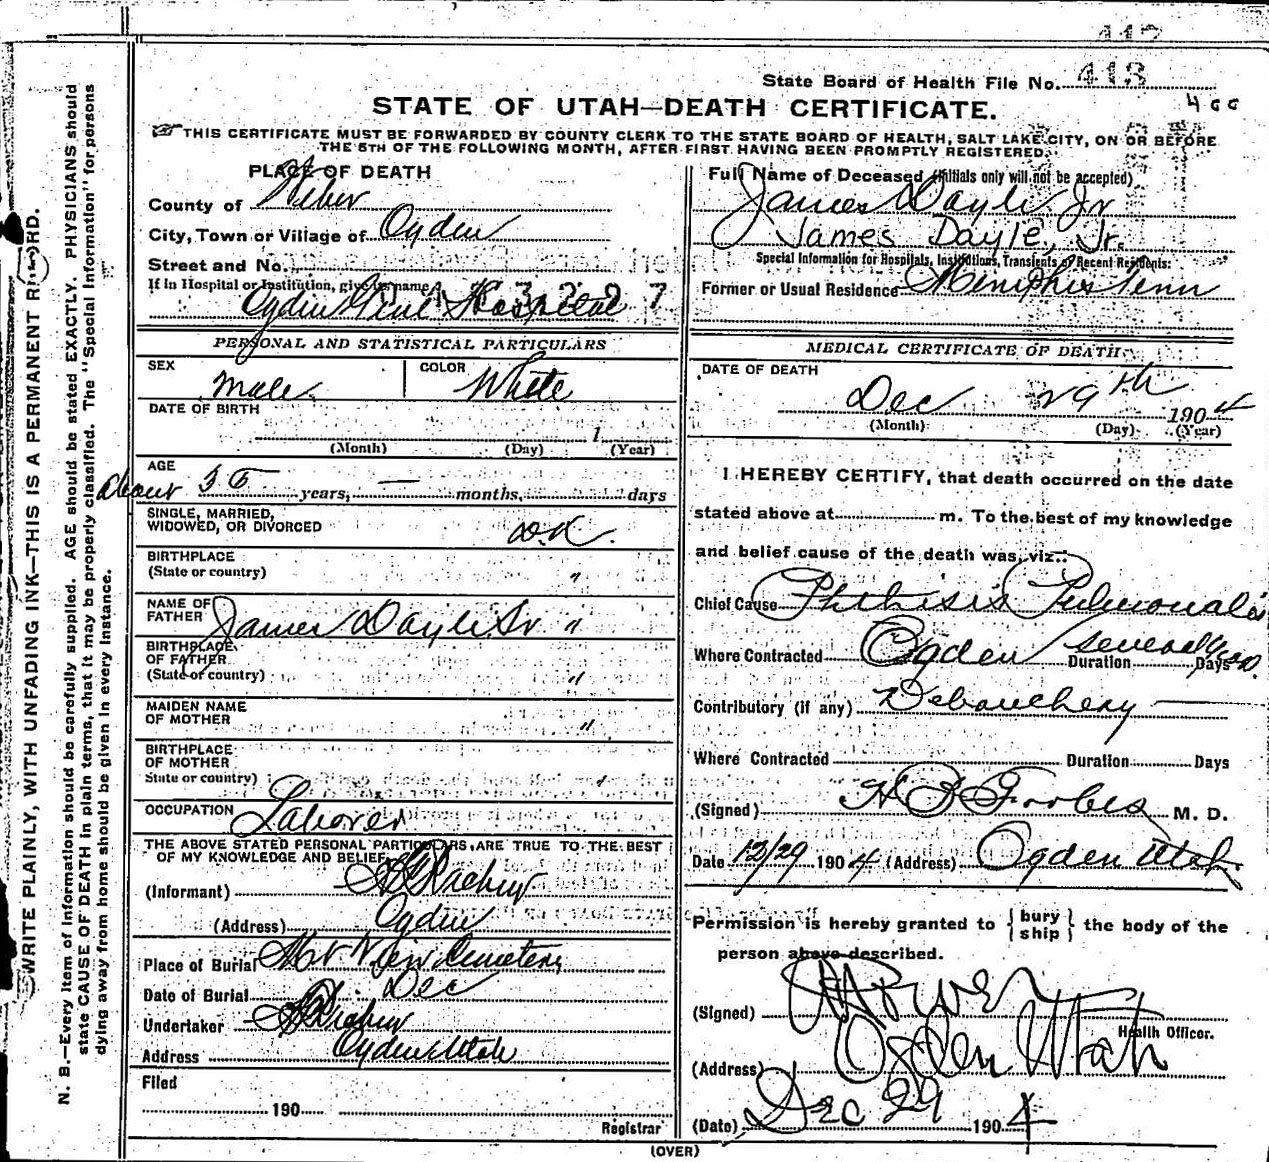 413
State Board of Health File No.
STATE OF UTAH—DEATH CERTIFICATE.
THIS CERTIFICATE MUST BE FORWARDED BY COUNTY CLERK TO THE STATE BOARD OF HEALTH, SALT LAKE CITY, ON OR BEFORE
THE 5TH OF THE FOLLOWING MONTH, AFTER FIRST HAVING BEEN PROMPTLY REGISTERED.
PLACE OF DEATH
County of Weber
City, Town or Village of Ogden
Street and No.
If in Hospital or Institution, give its name
Ogden Genl Hospital
PERSONAL AND STATISTICAL PARTICULARS
SEX Male COLOR White
DATE OF BIRTH
1
(Month) (Day) (Year)
AGE
about 35 years, — months, days
SINGLE, MARRIED,
WIDOWED, OR DIVORCED D.K.
BIRTHPLACE
(State or country) "
NAME OF
FATHER James Dayle Sr "
BIRTHPLACE
OF FATHER
(State or country) "
MAIDEN NAME
OF MOTHER "
BIRTHPLACE
OF MOTHER
State or country) "
OCCUPATION Laborer
THE ABOVE STATED PERSONAL PARTICULARS ARE TRUE TO THE BEST
OF MY KNOWLEDGE AND BELIEF
(Informant)
(Address) Ogden
Place of Burial Mt View Cemetery
Date of Burial Dec
Undertaker
Address Ogden Utah
Filed
190
Registrar
Full Name of Deceased (Initials only will not be accepted)
James Dayle Jr
James Dayle, Jr.
Special Information for Hospitals, Institutions, Transients or Recent Residents:
Former or Usual Residence Memphis Tenn
MEDICAL CERTIFICATE OF DEATH
DATE OF DEATH
Dec 29th 1904
(Month) (Day) (Year)
I HEREBY CERTIFY, that death occurred on the date
stated above at m. To the best of my knowledge
and belief cause of the death was, viz:
Chief Cause Phthisis Pulmonalis
Where Contracted Ogden Duration several Days
Contributory (if any) Debauchery
Where Contracted Duration Days
(Signed) H B Forbes M. D.
Date 12/29 1904 (Address) Ogden Utah
Permission is hereby granted to {bury
ship} the body of the
person above described.
(Signed)
Health Officer.
(Address) Ogden Utah
(Date) Dec 29 1904
(OVER)
WRITE PLAINLY, WITH UNFADING INK—THIS IS A PERMANENT RECORD.
N. B.—Every item of information should be carefully supplied. AGE should be stated EXACTLY. PHYSICIANS should
state CAUSE OF DEATH in plain terms, that it may be properly classified. The "Special Information" for persons
dying away from home should be given in every instance.